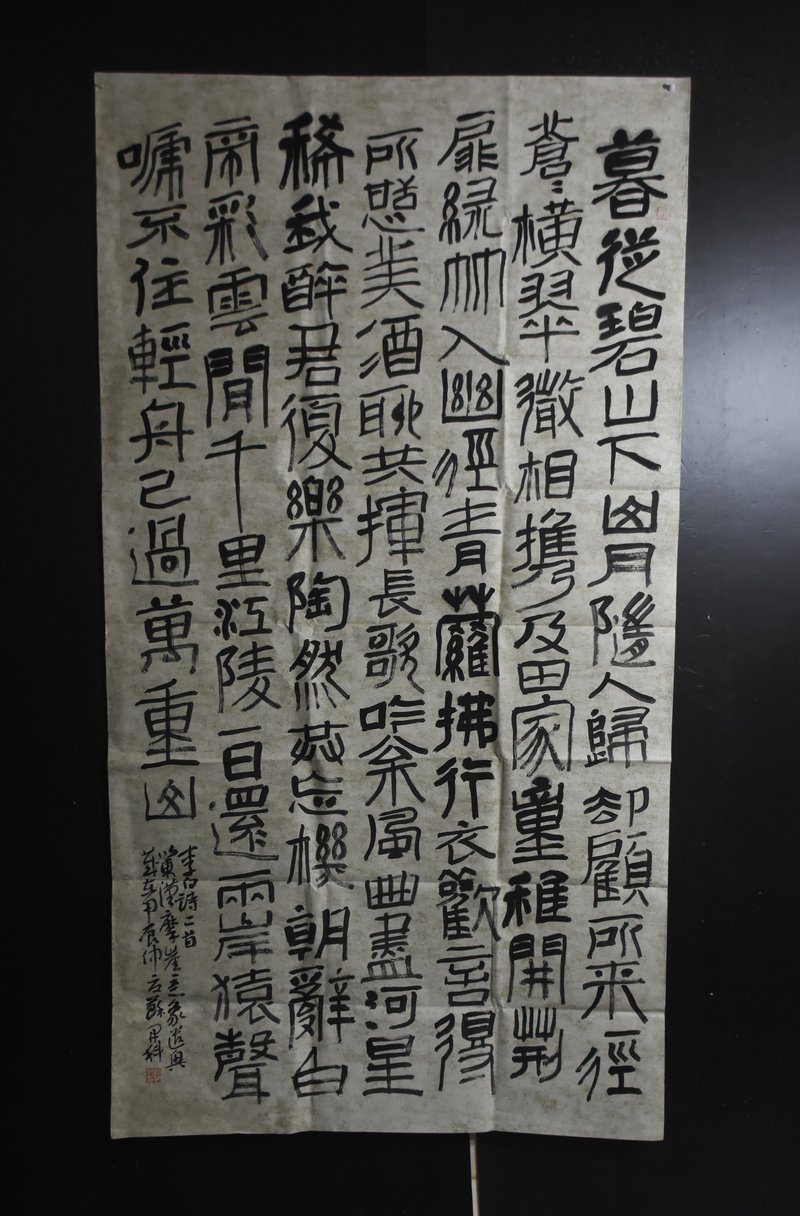 暮從碧山下山月隨人歸却顧所来徑
蒼〻橫翠微相攜及田家童稚開荊
扉緑竹入幽徑青蘿拂行衣歡言得
所憩美酒聊共揮長歌吟松風曲盡河星
稀我醉君復樂陶然共忘機朝辭白
帝彩雲間千里江陵一日還兩岸猿聲
啼不住輕舟已過萬重山
李白詩二首
漢摩崖意象遣興
歲在甲辰仲蘇